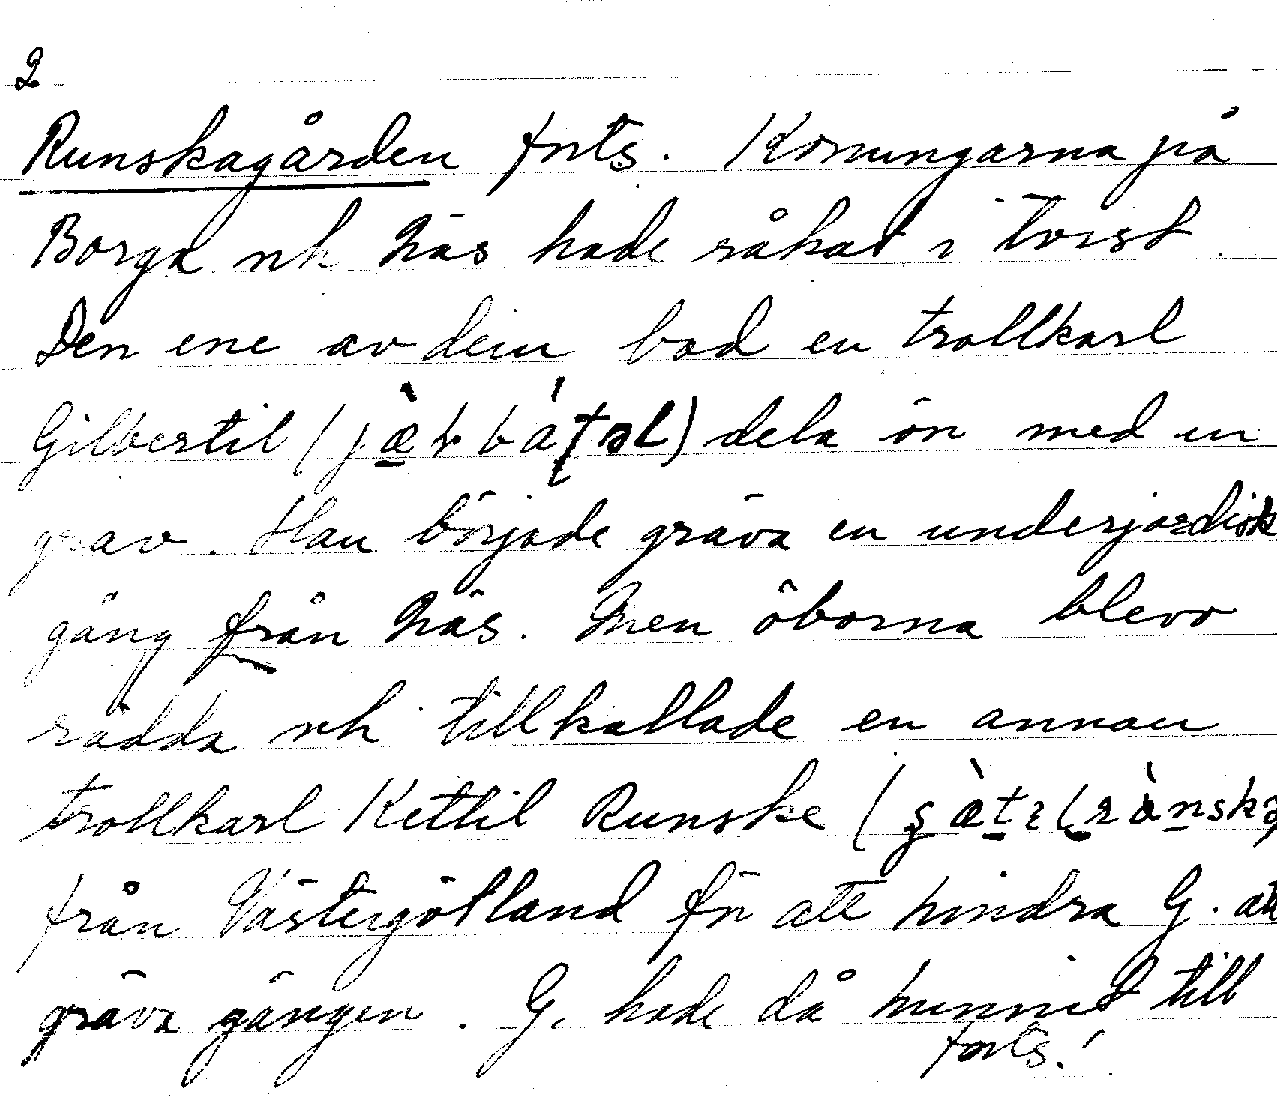 2
Runskagården forts. Konungarna på
Borga och Näs hade råkat i tvist.
Den ene av dem bad en trollkarl
Gilbertil ( dela ön med en
grav. Han började gräva en underjordisk
gång från Näs. Men öborna blevo
rädda och tillkallade en annan
trollkarl Kettil Runske (
från Västergötland för att hindra G. att
gräva gången. G. hade då hunnit till
forts!